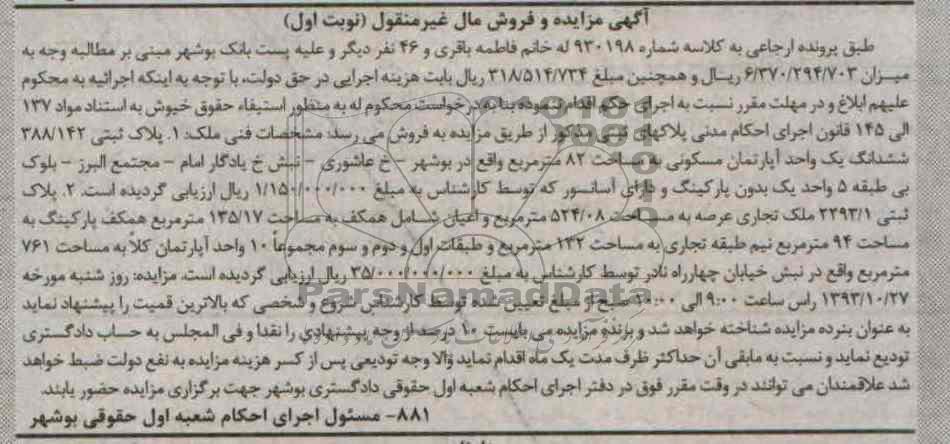 آگهی مزایده و فروش مال غیرمنقول (نوبت اول)
طبق پرونده ارجاعی به کلاسه شماره ۹۳۰۱۹۸ له خانم فاطمه باقری و ۴۶ نفر دیگر و علیه پست بانک بوشهر مبنی بر مطالبه وجه به
میزان ۶/۳۷۰/۲۹۴/۷۰۳ ریال و همچنین مبلغ ۳۱۸/۵۱۴/۷۳۴ ریال بابت هزینه اجرایی در حق دولت، با توجه به اینکه اجرائیه به محکوم
علیهم ابلاغ و در مهلت مقرر نسبت به اجرای حکم اقدام ننموده بنا به درخواست محکوم له به منظور استیفاء حقوق خیوش به استناد مواد ۱۳۷
الی ۱۴۵ قانون اجرای احکام مدنی پلاکهای ثبتی مذکور از طریق مزایده به فروش می رسد: مشخصات فنی ملک: ۱. پلاک ثبتی ۳۸۸/۱۴۲
ششدانگ یک واحد آپارتمان مسکونی به مساحت ۸۲ مترمربع واقع در بوشهر - خ عاشوری - نبش خ یادگار امام - مجتمع البرز - بلوک
بی طبقه ۵ واحد یک بدون پارکینگ و دارای آسانسور که توسط کارشناس به مبلغ ۱/۱۵۰/۰۰۰/۰۰۰ ریال ارزیابی گردیده است. ۲. پلاک
ثبتی ۲۲۹۳/۱ ملک تجاری عرصه به مساحت ۵۲۴/۰۸ مترمربع و اعیان شامل همکف به مساحت ۱۳۵/۱۷ مترمربع همکف پارکینگ به
مساحت ۹۴ مترمربع نیم طبقه تجاری به مساحت ۱۳۲ مترمربع و طبقات اول و دوم و سوم مجموعاً ۱۰ واحد آپارتمان کلاً به مساحت ۷۶۱
مترمربع واقع در نبش خیابان چهارراه نادر توسط کارشناس به مبلغ ۳۵/۰۰۰/۰۰۰/۰۰۰ ریال ارزیابی گردیده است. مزایده: روز شنبه مورخه
۱۳۹۳/۱۰/۲۷ راس ساعت ۹:۰۰ الی ۱۰:۰۰ صبح از مبلغ تعیین شده توسط کارشناس شروع و شخصی که بالاترین قمیت را پیشنهاد نماید
به عنوان بنرده مزایده شناخته خواهد شد و برنده مزایده می بایست ۱۰ درصد از وجه پیشنهادی را نقدا و فی المجلس به حساب دادگستری
تودیع نماید و نسبت به مابقی آن حداکثر ظرف مدت یک ماه اقدام نماید والا وجه تودیعی پس از کسر هزینه مزایده به نفع دولت ضبط خواهد
شد علاقمندان می توانند در وقت مقرر فوق در دفتر اجرای احکام شعبه اول حقوقی دادگستری بوشهر جهت برگزاری مزایده حضور یابند.
۸۸۱- مسئول اجرای احکام شعبه اول حقوقی بوشهر
ParsNamadData